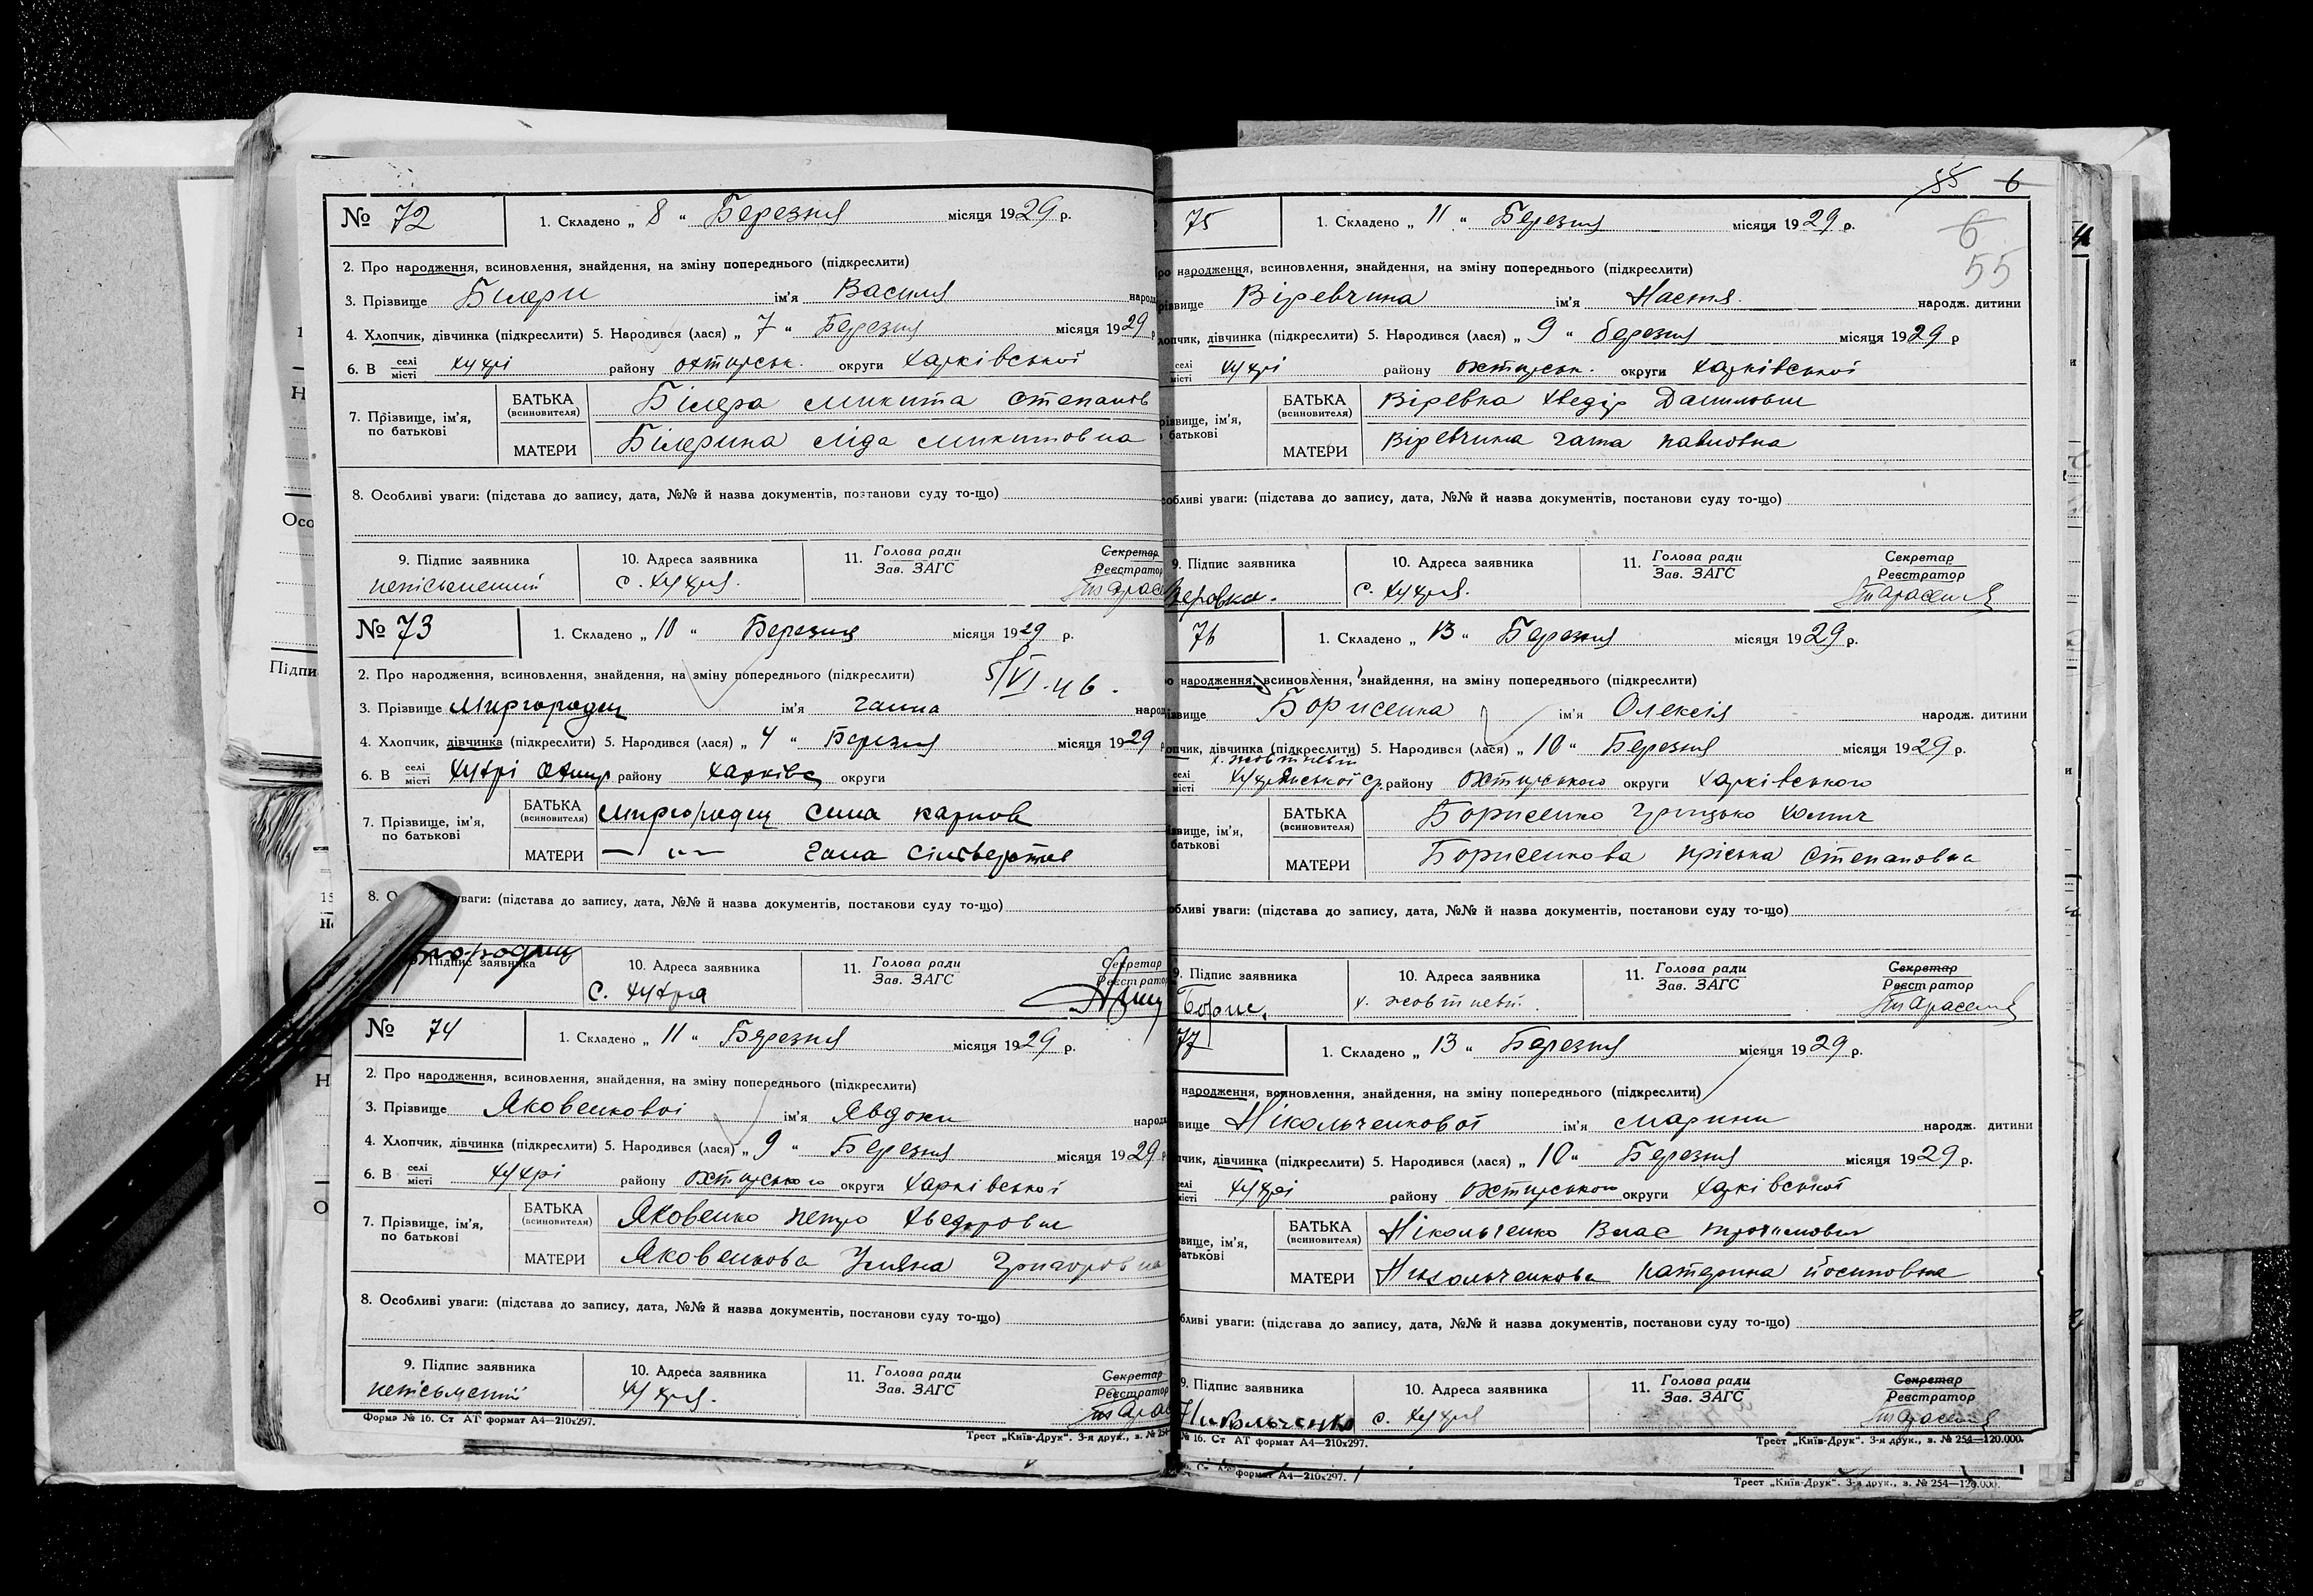 № 72
1. Складено „ 8 “ Березня місяця 1929 р.
2. Про народження, всиновлення, знайдення, на зміну попереднього (підкреслити)
3. Прізвище Білери ім'я Василя народ
4. Хлопчик, дівчинка (підкреслити) 5. Народився (лася) „ 7 “ Березня місяця 1929 р
6. В селі місті Хухрі району Охтирськ. округи Харківської
7. Прізвище, ім'я, по батькові
БАТЬКА (всиновителя) Білера Микита Степанов
МАТЕРИ Білерина Ліда Микитовна
8. Особливі уваги: (підстава до запису, дата, №№ й назва документів, постанови суду то-що)
9. Підпис заявника 10. Адреса заявника 11. Голова ради Зав. ЗАГС Секретар Реєстратор
неписьменний с. Хухря.
№ 73
1. Складено „ 10 “ Березня місяця 1929 р.
2. Про народження, всиновлення, знайдення, на зміну попереднього (підкреслити) 5/VI-46.
3. Прізвище Миргородец ім'я Ганна народ
4. Хлопчик, дівчинка (підкреслити) 5. Народився (лася) „ 4 “ Березня місяця 1929
6. В селі місті Хухрі Охтир району Харківс округи
7. Прізвище, ім'я, по батькові
БАТЬКА (всиновителя) Миргородец Сила Карпов
МАТЕРИ — „ — Гана
8. О уваги: (підстава до запису, дата, №№ й назва документів, постанови суду то-що)
Підпис заявника 10. Адреса заявника 11. Голова ради Зав. ЗАГС Секретар Реєстратор
с. Хухря
№ 74
1. Складено „ 11 “ Березня місяця 1929 р.
2. Про народження, всиновлення, знайдення, на зміну попереднього (підкреслити)
3. Прізвище Яковенкової ім'я Явдохи народ
4. Хлопчик, дівчинка (підкреслити) 5. Народився (лася) „ 9 “ Березня місяця 1929
6. В селі місті Хухрі району Охтирського округи Харківської
7. Прізвище, ім'я, по батькові
БАТЬКА (всиновителя) Яковенко Петро Хведорович
МАТЕРИ Яковенкова Уляна Григоровна
8. Особливі уваги: (підстава до запису, дата, №№ й назва документів, постанови суду то-що)
9. Підпис заявника 10. Адреса заявника 11. Голова ради Зав. ЗАГС Секретар Реєстратор
неписьменний Хухря.
Форма № 16. Ст АТ формат А4—210x297.
Трест „Київ-Друк“. 3-я друк., з. № 254
55 6
75
1. Складено „ 11 “ Березня місяця 1929 р.
6
55
ро народження, всиновлення, знайдення, на зміну попереднього (підкреслити)
різвище Віревчина ім'я Настя народж. дитини
лопчик, дівчинка (підкреслити) 5. Народився (лася) „ 9 “ березня місяця 1929 р
селі місті Хухрі району Охтирськ. округи Харківської
різвище, ім'я, батькові
БАТЬКА (всиновителя) Віревка Хведір Данилович
МАТЕРИ Віревчина Гапа Павловна
собливі уваги: (підстава до запису, дата, №№ й назва документів, постанови суду то-що)
9. Підпис заявника 10. Адреса заявника 11. Голова ради Зав. ЗАГС Секретар Реєстратор
Веровка. с. Хухря.
76
1. Складено „ 13 “ Березня місяця 1929 р.
о народження, всиновлення, знайдення, на зміну попереднього (підкреслити)
ізвище Борисенка ім'я Олексія народж. дитини
опчик, дівчинка (підкреслити) 5. Народився (лася) „ 10 “ Березня місяця 1929 р.
селі місті Хухрянської ср. району Охтирського округи Харківського
звище, ім'я, батькові
БАТЬКА (всиновителя) Борисенко Грицько Хомич
МАТЕРИ Борисенкова Пріська Степановна
обливі уваги: (підстава до запису, дата, №№ й назва документів, постанови суду то-що)
9. Підпис заявника 10. Адреса заявника 11. Голова ради Зав. ЗАГС Секретар Реєстратор
Борис.
77
1. Складено „ 13 “ Березня місяця 1929 р.
народження, всиновлення, знайдення, на зміну попереднього (підкреслити)
звище Нікольченкової ім'я Марини народж. дитини
пчик, дівчинка (підкреслити) 5. Народився (лася) „ 10 “ Березня місяця 1929 р.
селі місті Хухрі району Охтирського округи Харківської
звище, ім'я, батькові
БАТЬКА (всиновителя) Нікольченко Влас Трохимович
МАТЕРИ Никольченкова Катерина Йосиповна
бливі уваги: (підстава до запису, дата, №№ й назва документів, постанови суду то-що)
9. Підпис заявника 10. Адреса заявника 11. Голова ради Зав. ЗАГС Секретар Реєстратор
Никольченко с. Хухря
№ 16. Ст АТ формат А4—210x297.
Трест „Київ-Друк“. 3-я друк., з. № 254—120.000.
формат А4—210x297.
Трест „Київ-Друк“. 3-я друк., з. № 254—120.000.